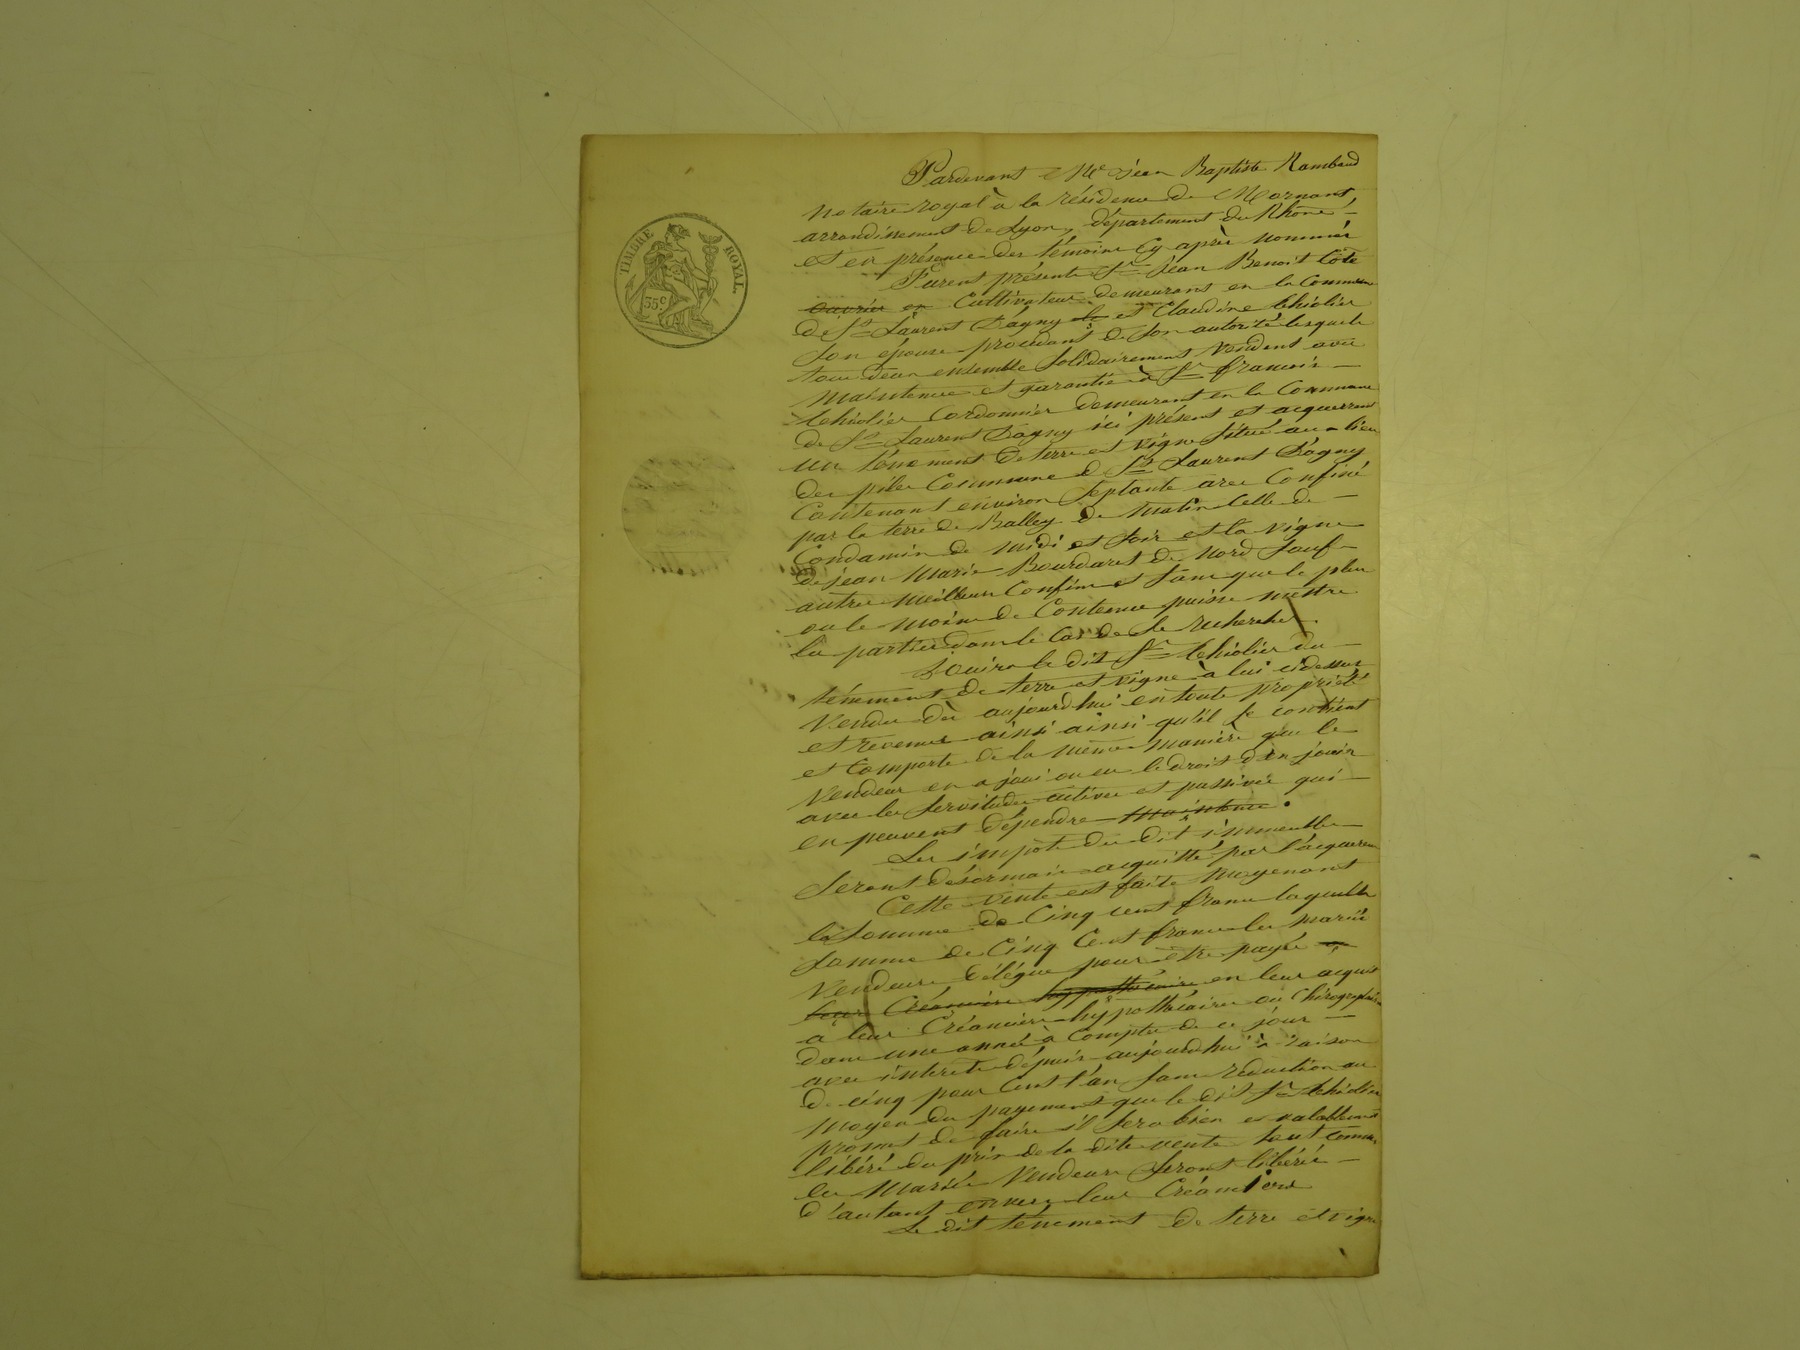 TIMBRE ROYAL.
35c
Pardevant Me Jean Baptiste Rambaud
Notaire royal à la résidence de Mornant,
arrondissement de Lyon, département du Rhône
et en présence des témoins cy après nommés
Furent présents Sr Jean Benoit Côte
ouvrier en Cultivateur demeurans en la Commune
de St Laurent Dagny et Claudine Chiolier
Son épouse procédant de son autorité lesquels
tous deux ensemble solidairement vendent avec
maintenue et garantie à Sr francois
Chiolier Cordonnier demeurant en la Commune
de St Laurent Dagny ici présent et acquerrant
un ténement de terre et vigne situé au lieu
des piles Commune de St Laurent Dagny
Contenant environ Septante ares Confiné
par la terre de Balley de matin Celle de
Condamin de midi et soir et la vigne
de jean Marie Bourdaret de nord sauf
autres meilleurs Confins et sans que le plus
ou le moins de Contenue puisse mettre
les parties dans le Cas de se rechercher.
Jouira le dit Sr Chiolier du
ténement de terre et vigne à lui cidessus
Vendu dès aujourd'hui en toute propriété
et revenus ainsi ainsi qu'il se contient
et Comporte de la même manière que le
Vendeur en a joui ou eu le droit d'en jouir
avec les Servitudes actives et passives qui
en peuvent dépendre maintenue.
Les impots du dit immeuble
seront désormais acquittés par l'acquereur
Cette vente est faite moyenant
la Somme de Cinq cent francs laquelle
Somme de Cinq Cent francs les mariés
Vendeurs délégue pour être payée
leurs Créanciers hypothécaires en leur acquit
à leurs Créanciers hypothécaires ou Chirographaires
dans une année à Compter de ce jour
avec intérêts depuis aujourd'hui à raison
de cinq pour Cent l'an sans réduction au
moyen du payement que le dit Sr Chiolier
promet de faire il sera bien et valablement
libéré du prix de la dite vente tout comme
les Mariés Vendeurs seront libérés
d'autant envers leurs Créanciers
Le dit ténement de terre et vigne